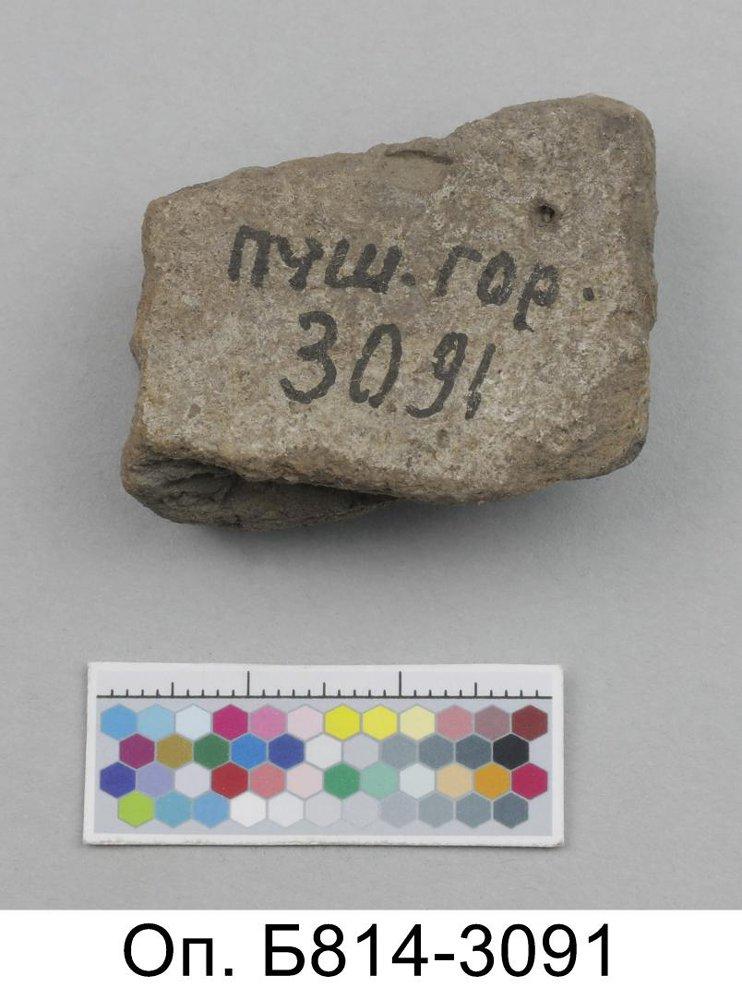 пчш. гор.
3091
Оп. Б814-3091